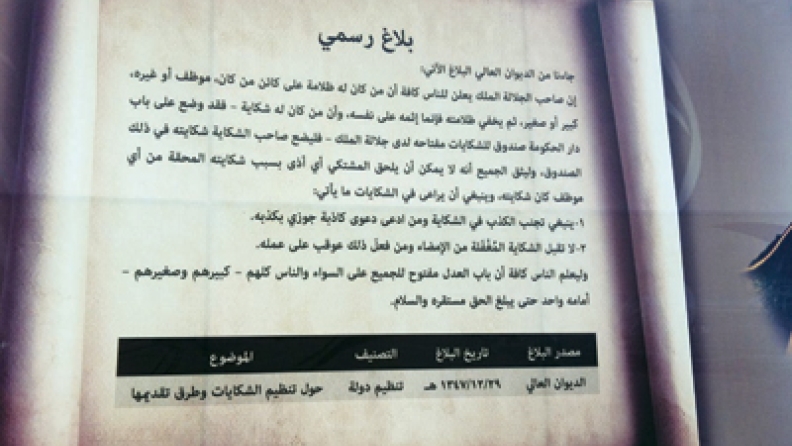 بلاغ رسمي
جاءنا من الديوان العالي البلاغ الآتي:
إن صاحب الجلالة الملك يعلن للناس كافة أن من كان له ظلامة على كائن من كان، موظف أو غيره،
كبير أو صغير، ثم يخفي ظلامته فإنما إثمه على نفسه، وأن من كان له شكاية – فقد وضع على باب
دار الحكومة صندوق للشكايات مفتاحه لدى جلالة الملك – فليضع صاحب الشكاية شكايته في ذلك
الصندوق، وليثق الجميع أنه لا يمكن أن يلحق المشتكي أي أذى بسبب شكايته المحقة من أي
موظف كان شكايته، وينبغي أن يراعى في الشكايات ما يأتي:
١-ينبغي تجنب الكذب في الشكاية ومن ادعى دعوى كاذبة جوزي بكذبه.
٢-لا تقبل الشكاية المُغْفَلة من الإمضاء ومن فعل ذلك عوقب على عمله.
وليعلم الناس كافة أن باب العدل مفتوح للجميع على السواء والناس كلهم – كبيرهم وصغيرهم –
أمامه واحد حتى يبلغ الحق مستقره والسلام.
مصدر البلاغ تاريخ البلاغ التصنيف الموضوع
الديوان العالي ١٣٤٧/١٢/٢٩ هـ تنظيم دولة حول تنظيم الشكايات وطرق تقديمها